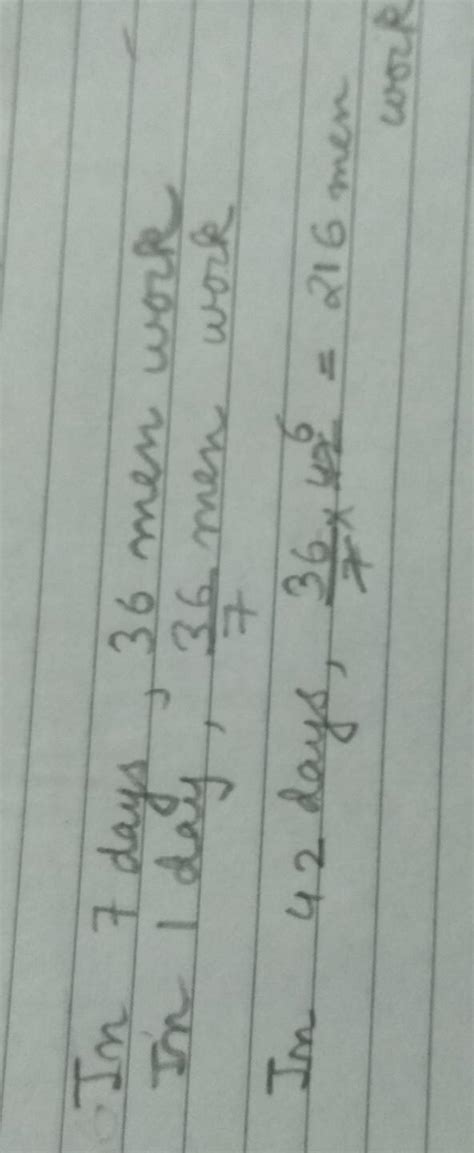 In 7 days, 36 men work
In 1 day, 36/7 men work
In 42 days, 36/7 × 42 6 = 216 men
work